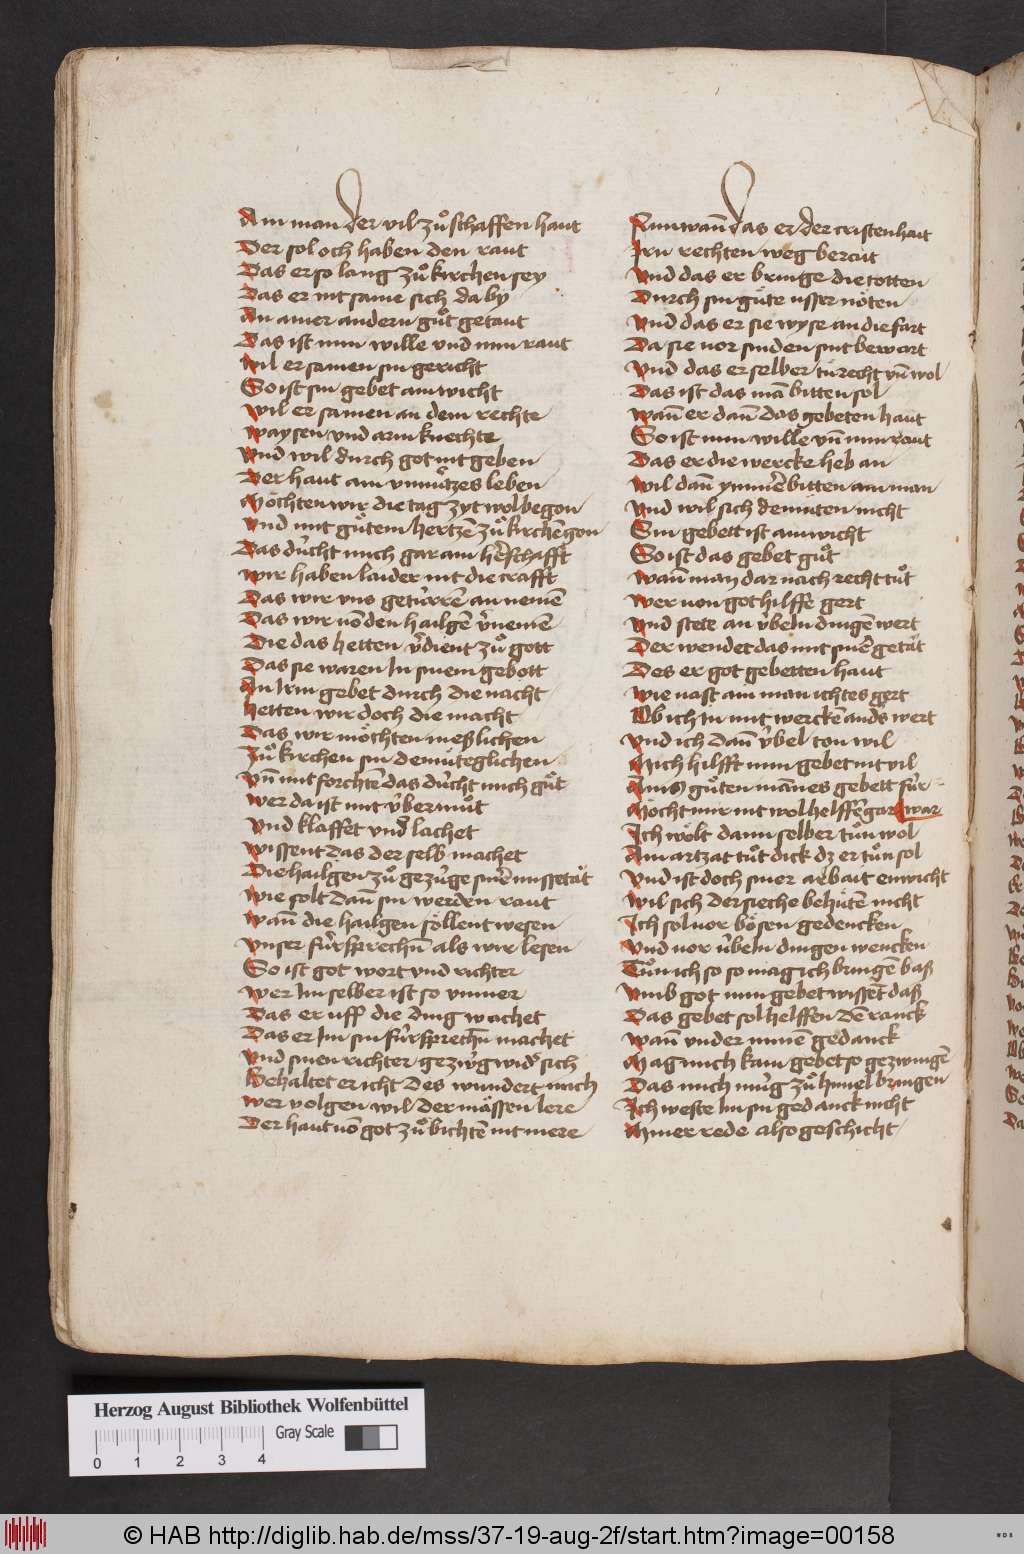 Am man der vil zuͦ schaffen haut
Der sol och haben den raut
Das er so lang zuͦ kirchen sey
Das er nit same sich da by
An ainer andern guͦt getaut
Das ist min wille vnd min raut
Wil er samen sin gericht
So ist sin gebet ain wicht
Wil er samen an dem rechte
Waysen vnd arm knechte
Vnd wil durch got nit geben
Der haut ain vnnützes leben
Möchten wir die tag zyt wol begon
Vnd mit guͦtem hertzē zuͦ kirchē gon
Das dücht mich gar ain hērschafft
Wir haben laider nit die crafft
Das wir vns getürrē an nemē
Das wir vō den hailgē v̄nemē
Die das hetten v̄dient zuͦ gott
Das sie waren In sinem gebott
An Irm gebet durch die nacht
Hetten wir doch die macht
Das wir möchten meßlichen
Zuͦ kirchen sin demüteglichen
Vn̄ mit forchte das dücht mich guͦt
Wer da ist mit v̈bermuͦt
Vnd klaffet vnd lachet
Wissent das der selb machet
Die hailgen zuͦ gezüge sinē missetät
Wie solt dan̄ sin werden raut
Wan̄ die hailgen söllent wesen
Vnser fürsprechn̄ als wir lesen
So ist got wort vnd richter
Wer Im selber ist so vnmer
Das er uff die ding wachet
Das er Im sin fürsprechn̄ machet
Vnd sinen richter gezüg wid' sich
Behaltet er icht des wundert mich
Wer volgen wil der mässen lere
Der haut vō got zuͦ bichtē nit mere
Nun wan̄ das er der cristenhait
Irn rechten weg berait
Vnd das er bringe die totten
Durch sin güte usser nöten
Vnd das er sie wyse an die fart
Da sie vor sinden sint bewart
Vnd das er selber tü recht vn̄ wol
Das ist das mā bitten sol
Wan̄ er dan̄ das gebeten haut
So ist min wille vn̄ min raut
Das er die wercke heb an
Wil dan̄ ymmer bitten ain man
Vnd wil sich demüten nicht
Sin gebett ist ain wicht
So ist das gebet guͦt
Wan̄ man dar nach recht tuͦt
Wer von got hilffe gert
Vnd stete an v̈beln dingē wert
Der wendet das mit sinē getät
Des er got gebetten haut
Wie vast ain man ichtes gert
Ob ich In mit werckē and's wert
Vnd ich dan̄ v̈bel ton wil
Mich hilfft min gebet nit vil
Ains guͦten mannes gebett für
Möcht mir nit wol helffē gar war
Ich wölt dann selber tuͦn wol
Ain artzat tuͦt dick dz er tuͦn sol
Vnd ist doch siner arbait enwicht
Wil sich der sieche behüten nicht
Ich sol vor bösen gedencken
Vnd vor übeln dingen wencken
Tuͦn ich so so mag ich bringē baß
Vmb got min gebet wissēt daß
Das gebet sol helffen dē kranck
Wan̄ vnder minē gedanck
Mag mich kam gebet so gezwingē
Das mich müg zuͦ himel bringen
Ich weste Im sin gedanck nicht
Miner rede also geschicht
Herzog August Bibliothek Wolfenbüttel
Gray Scale
0 1 2 3 4
© HAB http://diglib.hab.de/mss/37-19-aug-2f/start.htm?image=00158